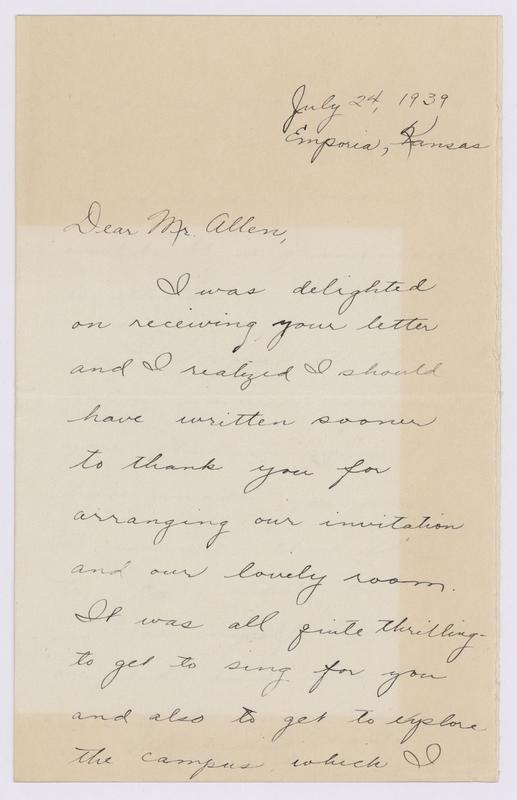 July 24, 1939
Emporia, Kansas
Dear Mr. Allen,
I was delighted
on receiving your letter
and I realized I should
have written sooner
to thank you for
arranging our invitation
and our lovely room.
It was all quite thrilling-
to get to sing for you
and also to get to explore
the campus which I